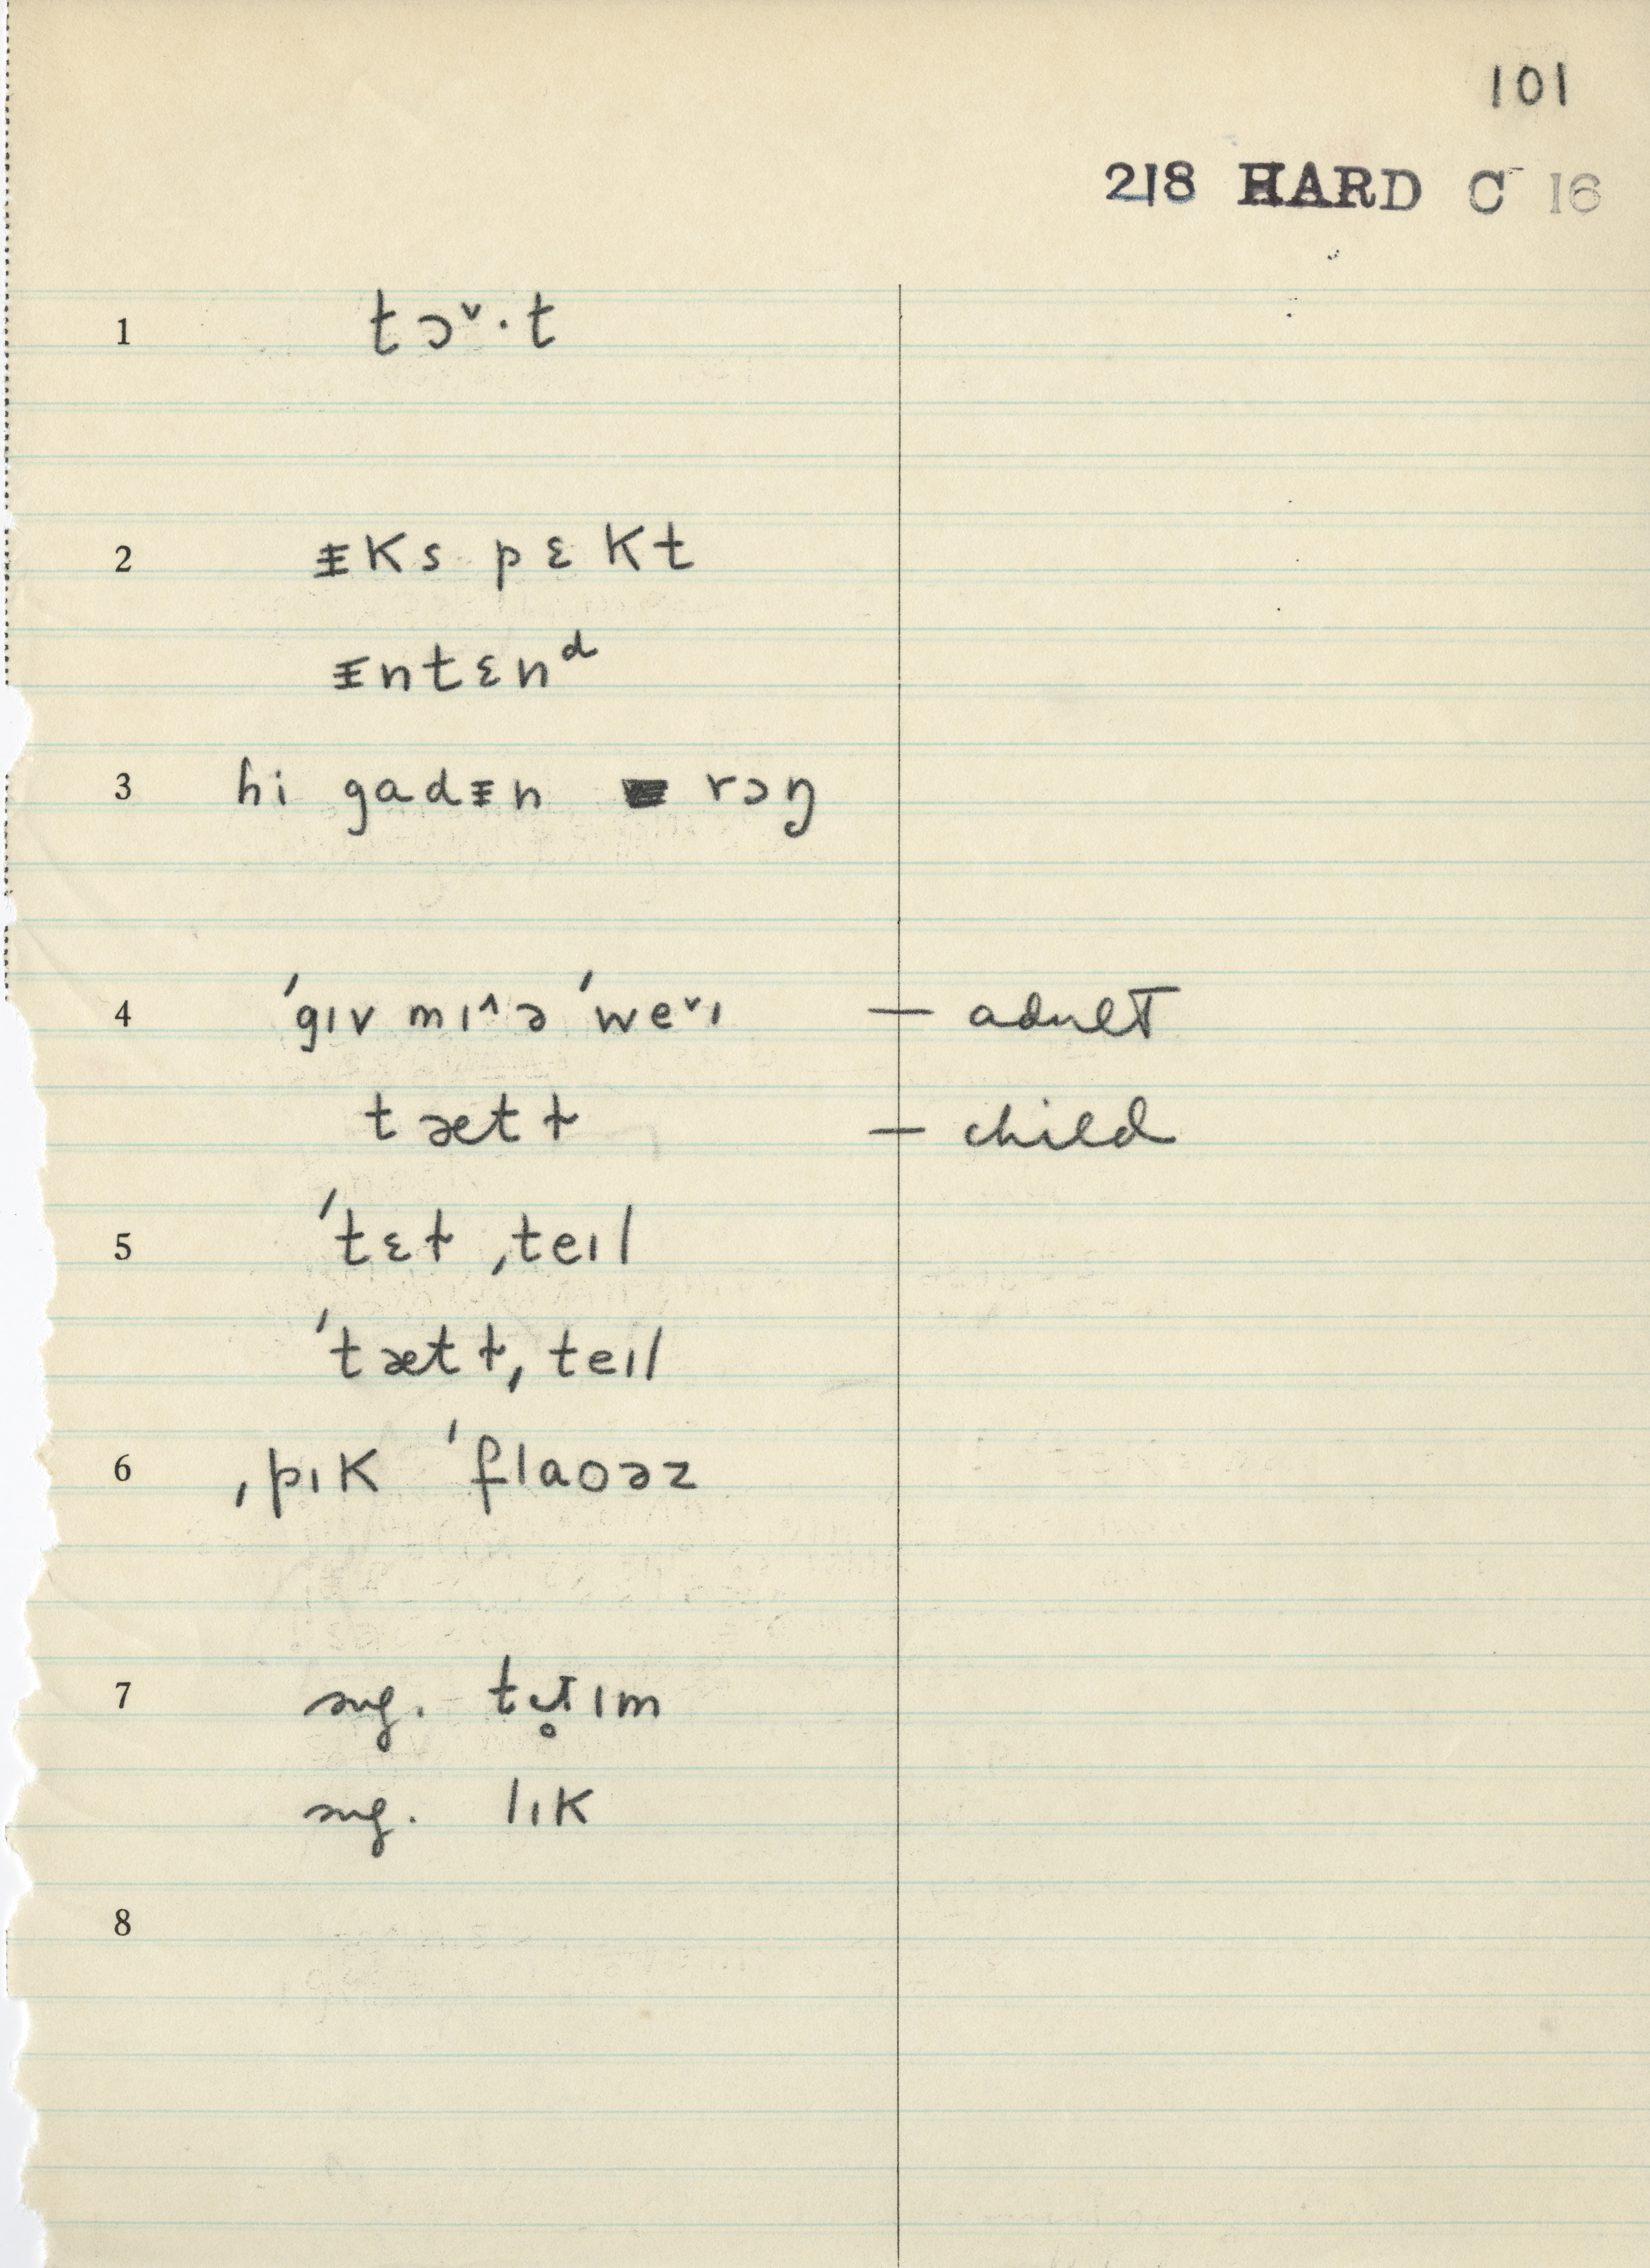 101
218 HARD C 16
1 tɔ˅·t
2 ᵻks pɛkt
ᵻntɛnᵈ
3 hi gadᵻn rɔŋ
4 ˈgɪv mɪ˄ ə ˈwe˅ɪ — adult
tætɫ — child
5 ˈtɛɫ ˌteɪl
ˈtætɫ ˌteɪl
6 ˌpɪk ˈflaoəz
7 sug. ɪm
sug. lɪk
8